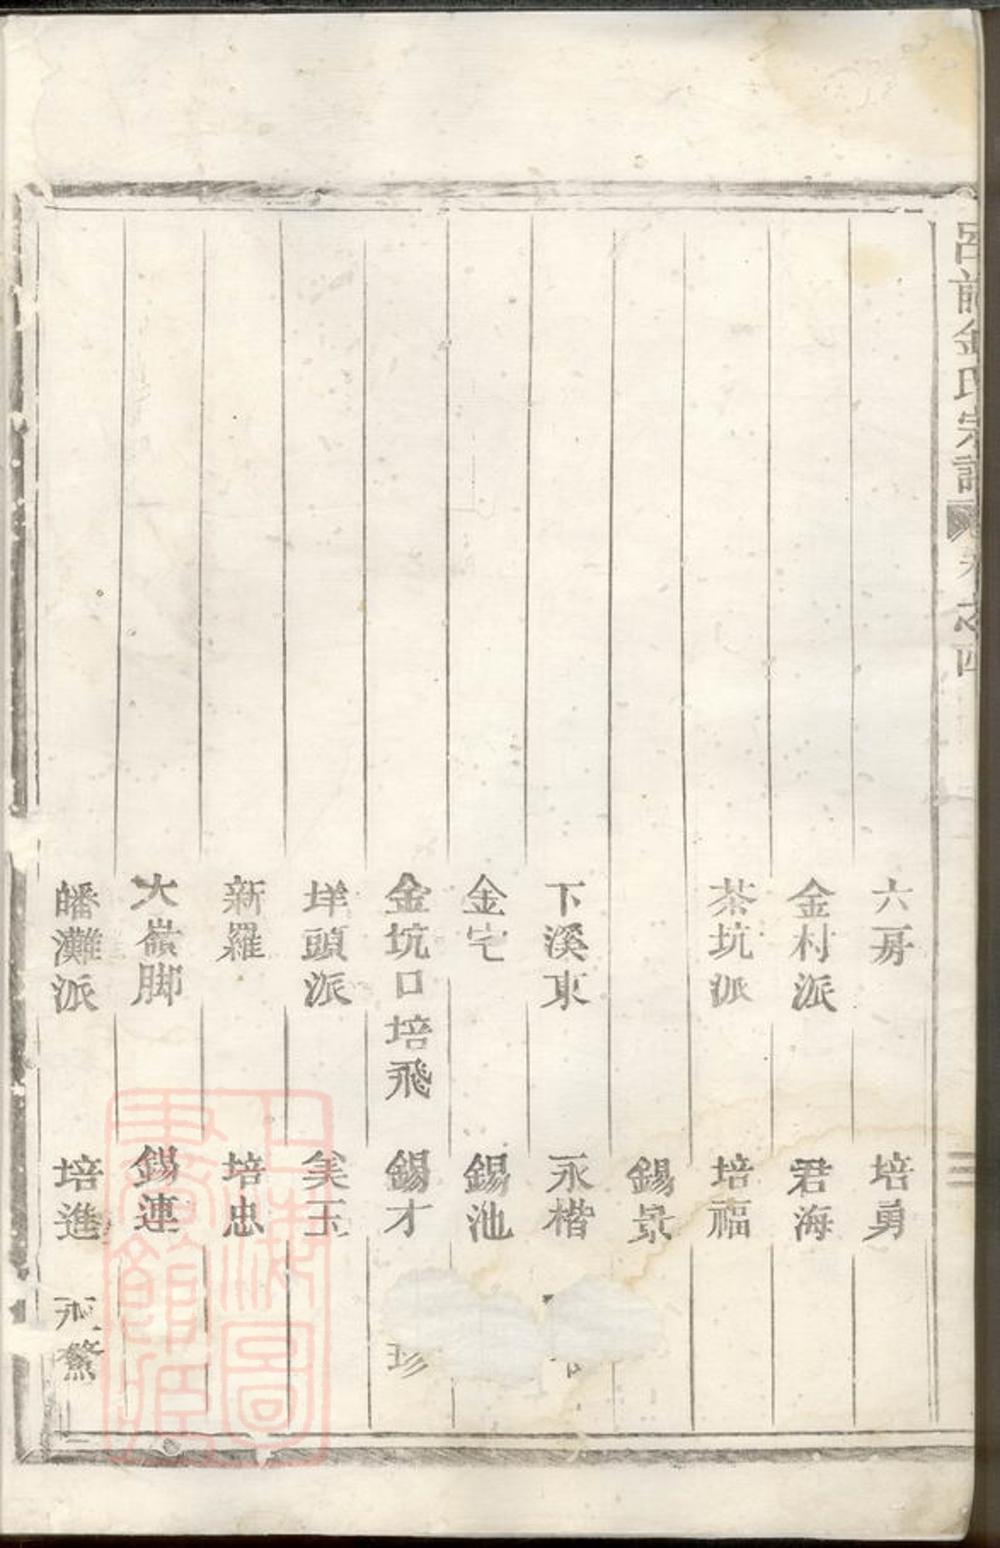 呂前金氏宗譜 卷之四
三
六房 培勇
金村派 君海
茶坑派 培福
錫景
下溪東 永楷
金宅 錫池
金坑口 培飛 錫才 珍
垟頭派 美玉
新羅 培忠
大嶺脚 錫連
皤灘派 培進
上海圖書館藏